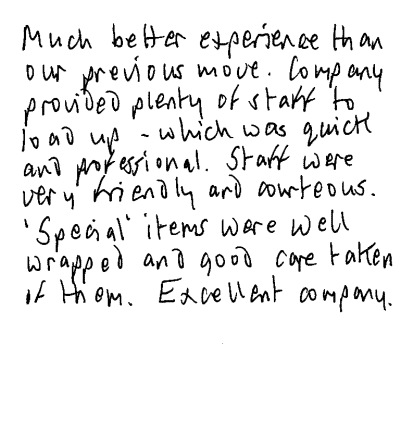 Much better experience than
our previous move. Company
provided plenty of staff to
load up - which was quick
and professional. Staff were
very friendly and courteous.
'Special' items were well
wrapped and good care taken
of them. Excellent company.